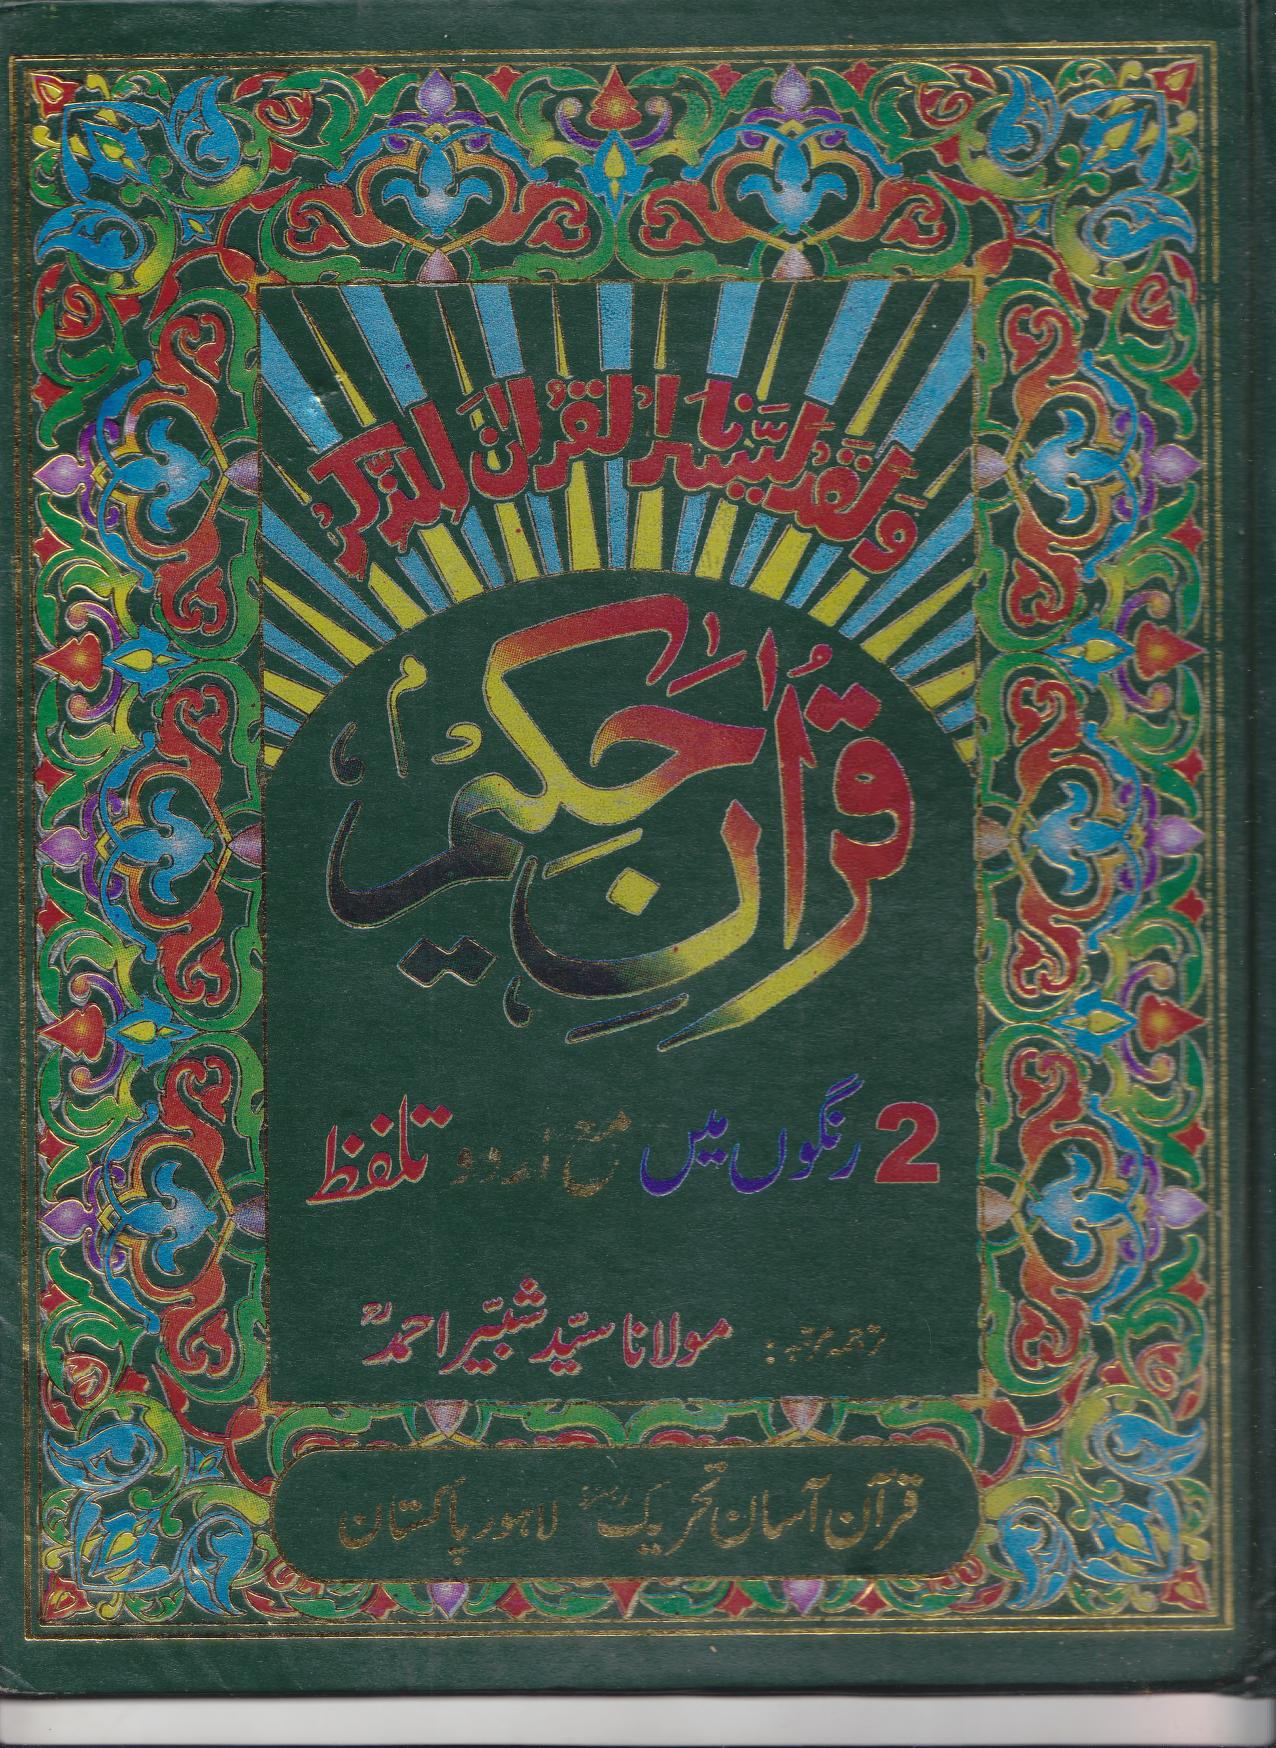 وَلَقَدْ يَسَّرْنَا الْقُرْاٰنَ لِلذِّكْرِ
قُرْاٰنِ حَكِيْم
2 رنگوں میں مع اردو تلفظ
مولانا سیّد شبّیر احمدؒ
قرآن آسان تحریک رجسٹرڈ لاہور پاکستان